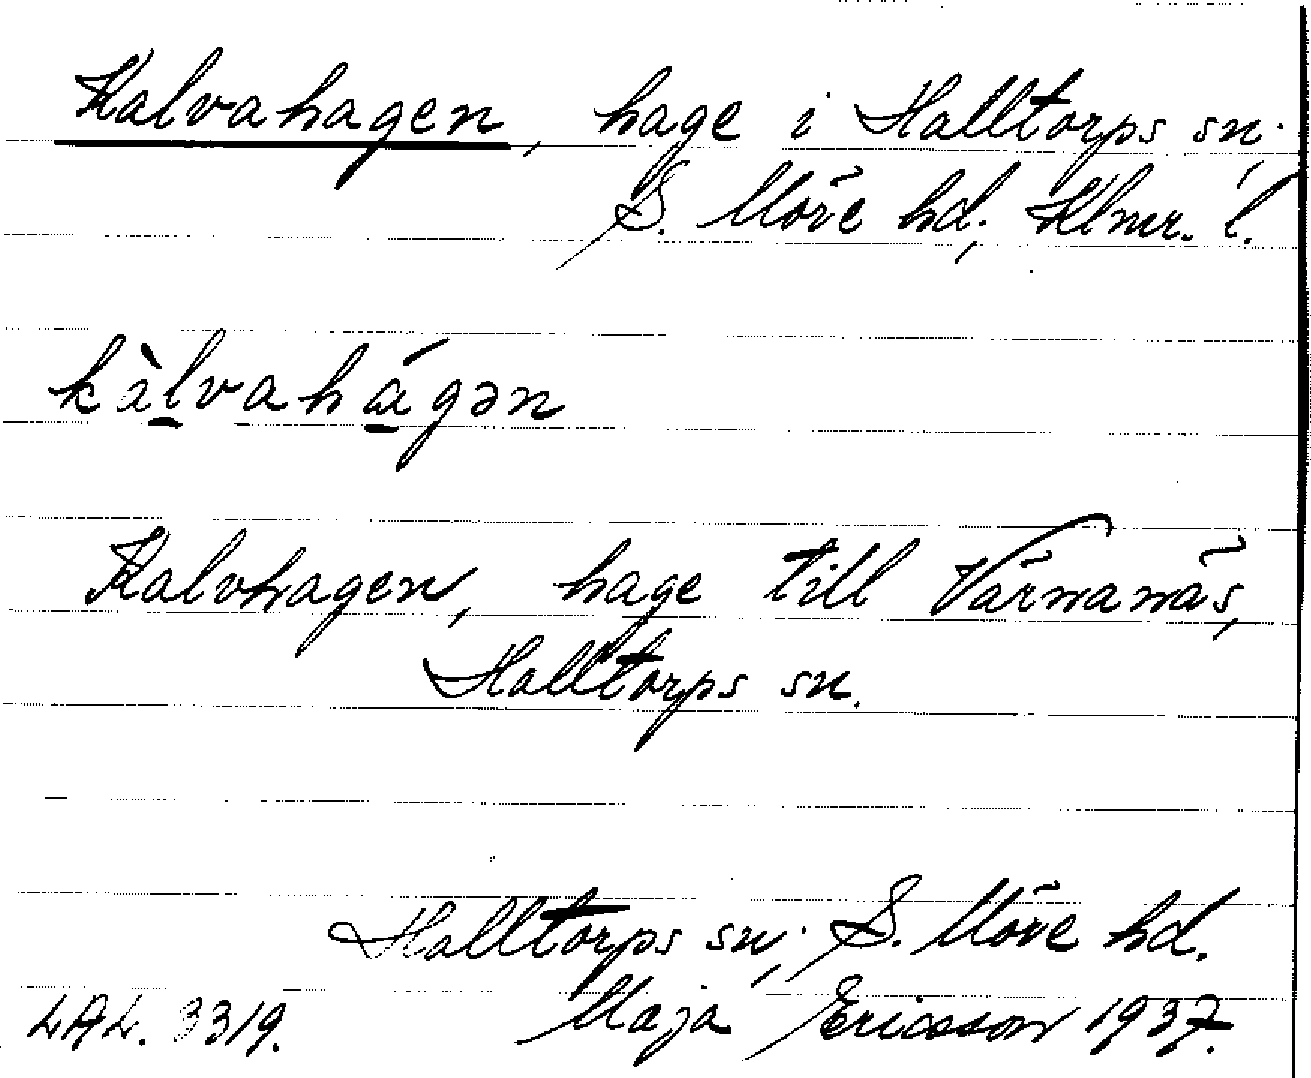 Kalvahagen, hage i Halltorps sn.,
S. Möre hd., Klmr. l.
kàl̠vahá̠gən
Kalvhagen, hage till Värnanäs,
Halltorps sn.
Halltorps sn., S. Möre hd.
LAL. 3319. Maja Ericsson 1937.